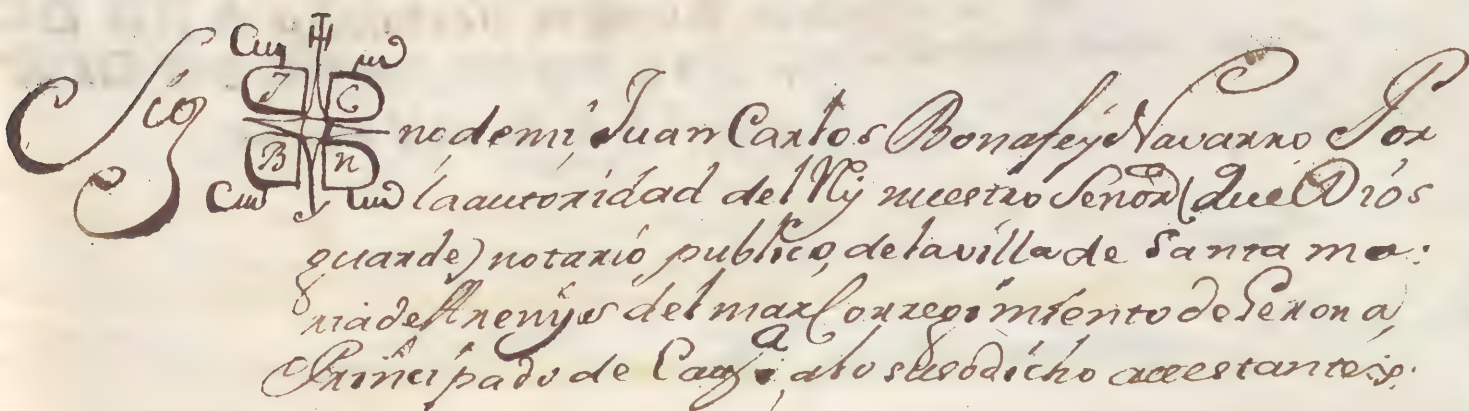 Sig no de mi Juan Carlos Bonafe y Navarro Por
la autoridad del Ry nuestro Señor (que Dios
guarde) notario publico, de la villa de Santa ma:
ria de Arenys del mar Corregimiento de Gerona,
Principado de Cat.ª, a lo susodicho